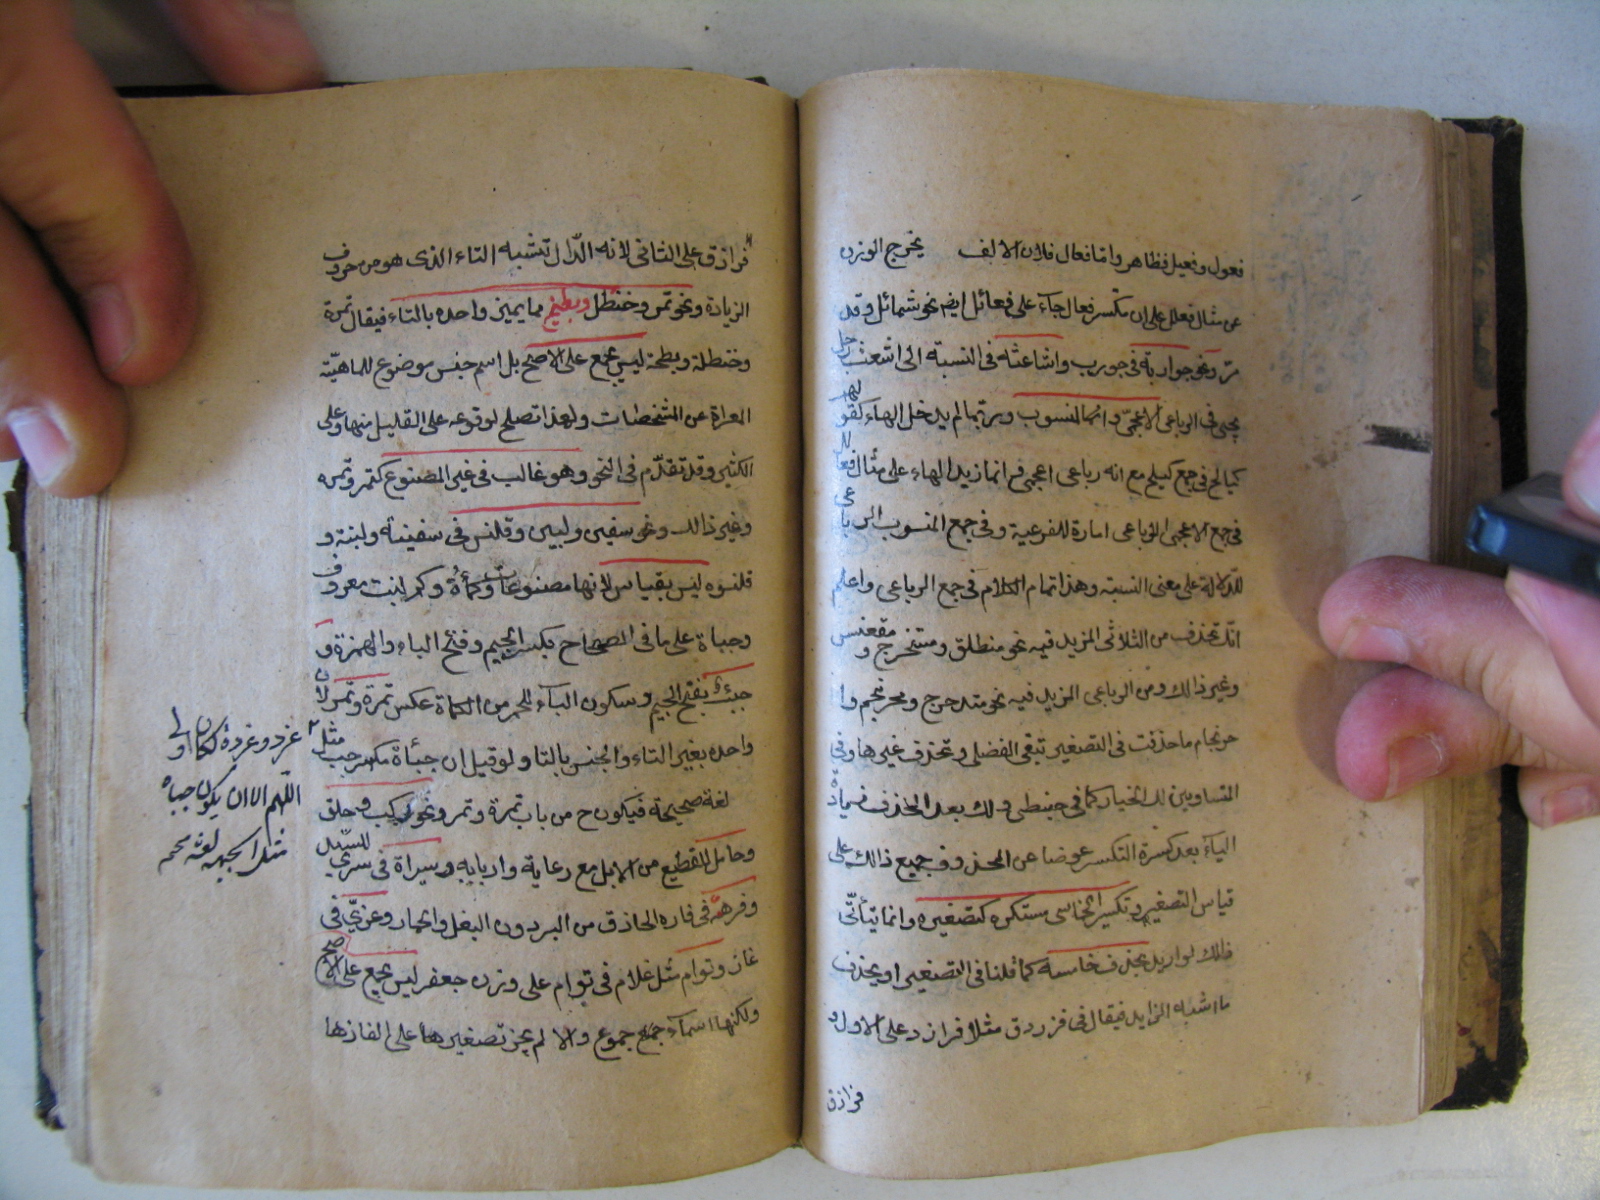 فعول وفعيل فظاهر وامّا فعال فلان الالف يخرج الوزن
عن مثال فعلل على ان تكسر فعال جآء على فعائل ايض نحو شمائل وقد
مرّ ونحو جواربة فى جورب واشاعثة فى النسبة الى اشعث
يجئ فى الرباعى الاعجمّى وامّا المنسوب وربّما لم يدخل الهاء كقولهم
كيالج فى جمع كيلج مع انه رباعى اعجمى وانما زيد الهاء على مثال فعالل
فى جمع الاعجمى الرباعى امارة للفرعية وفى جمع المنسوب الرباعى
للدلالة على معنى النسبة وهذا تمام الكلام فى جمع الرباعى واعلم
انّك تحذف من الثلاثى المزيد فيه نحو منطلق ومستخرج ومقعنسس
وغير ذالك ومن الرباعى المزيد فيه نحو متدحرج ومحرنجم وا
حرنجام ما حذفت فى التصغير تبقى الفضلى وتحذف غيرها وفى
التساويين لك الخيار كما فى حبنطى ولك بعد الحذف زيادة
اليآء بعد كسرة التكسر عوضا عن المحذوف وجميع ذالك على
قياس التصغير وتكسير الخماسى مستكره كتصغيره وانما يتأتّى
ذالك لو اريد بحذف خامسه كما قلنا فى التصغير او بحذف
ما اشبه الزايد فيقال فى فرزدق مثلا فرازد على الاول و
فرازق
فرازق على الثانى لانه الدّال تشبه التاء الذى هو من حروف
الزيادة ونحو تمر وحنظل وبطيخ مما يميز واحده بالتاء فيقال تمرة
وحنظلة وبطيخة ليس بجمع على الاصح بل اسم جنس موضوع للماهيّة
المعراة عن المشخصات ولهذا تصلح لوقوعه على القليل منها وعلى
الكثير وقد تقدّم فى النحو وهو غالب فى غير المصنوع كتمر وتمره
وغير ذالك ونحو سفين ولبين وقلنس فى سفينة ولبنة و
قلنسوه ليس بقياس لانها مصنوعات وكمأة وكمء لنبت معروف
وجباة على ما فى الصحاح بكسر الجيم وفتح الباء والهمزة و
جبء بفتح الجيم وسكون البآء للحمر من الكماة عكس تمرة وتمر لان
واحده بغير التاء والجنس بالتا ولو قيل ان جبأة مكسر جب مثل
لغة صحيحة فيكون ح من باب تمرة وتمر ونحو ركب وحلق
وجامل للقطيع من الابل مع رعاية واربابه وسراة فى سرى للسيّد
وفرهة فى فاره الحاذق من البردون البغل والحمار وغزىّ فى
غاز وتوام مثل غلام فى توام على وزن جعفر ليس بجمع على الاصح
ولكنها اسمآء جمع جموع والا لم يجز تصغيرها على الفاظها
غرد وغردة لكان اولى
اللّهم الا ان يكون جباه